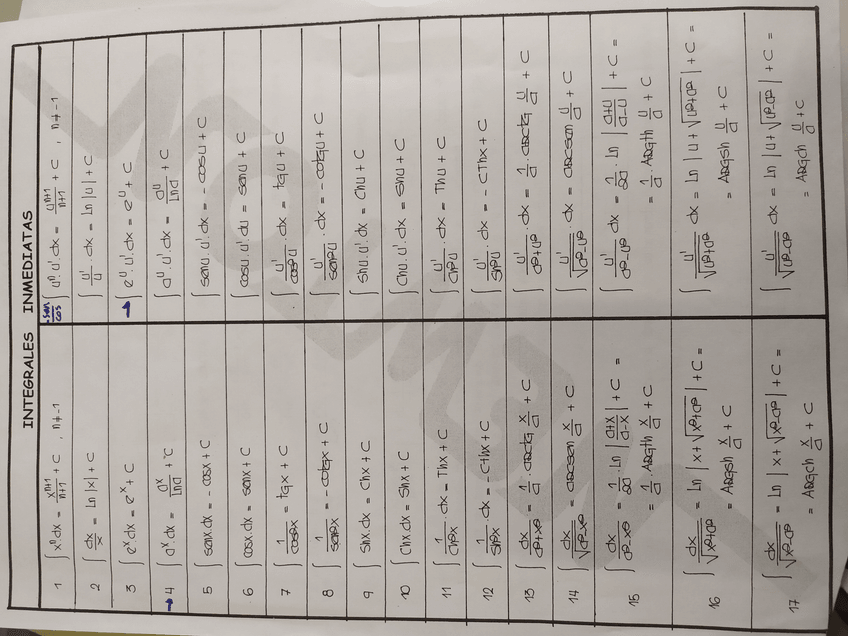 INTEGRALES INMEDIATAS
1 ∫ xⁿ dx = xⁿ⁺¹/n+1 + C , n≠-1
sen/cos ∫ uⁿ · u' · dx = uⁿ⁺¹/n+1 + C , n≠-1
2 ∫ dx/x = Ln |x| + C
∫ u'/u · dx = Ln |u| + C
3 ∫ eˣ dx = eˣ + C
→ ∫ eᵘ · u' · dx = eᵘ + C
→ 4 ∫ aˣ · dx = aˣ/Lna + C
∫ aᵘ · u' · dx = aᵘ/Lna + C
5 ∫ senx dx = - cosx + C
∫ senu · u' · dx = - cosu + C
6 ∫ cosx · dx = senx + C
∫ cosu · u' · du = senu + C
7 ∫ 1/cos²x = tgx + C
∫ u'/cos²u · dx = tgu + C
8 ∫ 1/sen²x = - cotgx + C
∫ u'/sen²u · dx = - cotgu + C
9 ∫ Shx · dx = Chx + C
∫ Shu · u' · dx = Chu + C
10 ∫ Chx dx = Shx + C
∫ Chu · u' · dx = Shu + C
11 ∫ 1/Ch²x · dx = Thx + C
∫ u'/Ch²u · dx = Thu + C
12 ∫ 1/Sh²x dx = - CThx + C
∫ u'/Sh²u · dx = - CThx + C
13 ∫ dx/a²+x² = 1/a · arctg x/a + C
∫ u'/a²+u² · dx = 1/a · arctg u/a + C
14 ∫ dx/√a²-x² = arcsen x/a + C
∫ u'/√a²-u² · dx = arcsen u/a + C
15 ∫ dx/a²-x² = 1/2a · Ln |a+x/a-x| + C =
= 1/a · ARGTh x/a + C
∫ u'/a²-u² dx = 1/2a · Ln |a+u/a-u| + C =
= 1/a · ARGTh u/a + C
16 ∫ dx/√x²+a² = Ln | x + √x²+a² | + C =
= ARGSh x/a + C
∫ u'/√u²+a² dx = Ln | u + √u²+a² | + C =
= ARGSh u/a + C
17 ∫ dx/√x²-a² = Ln | x + √x²-a² | + C =
= ARGCh x/a + C
∫ u'/√u²-a² dx = Ln | u + √u²-a² | + C
= ARGCh u/a + C